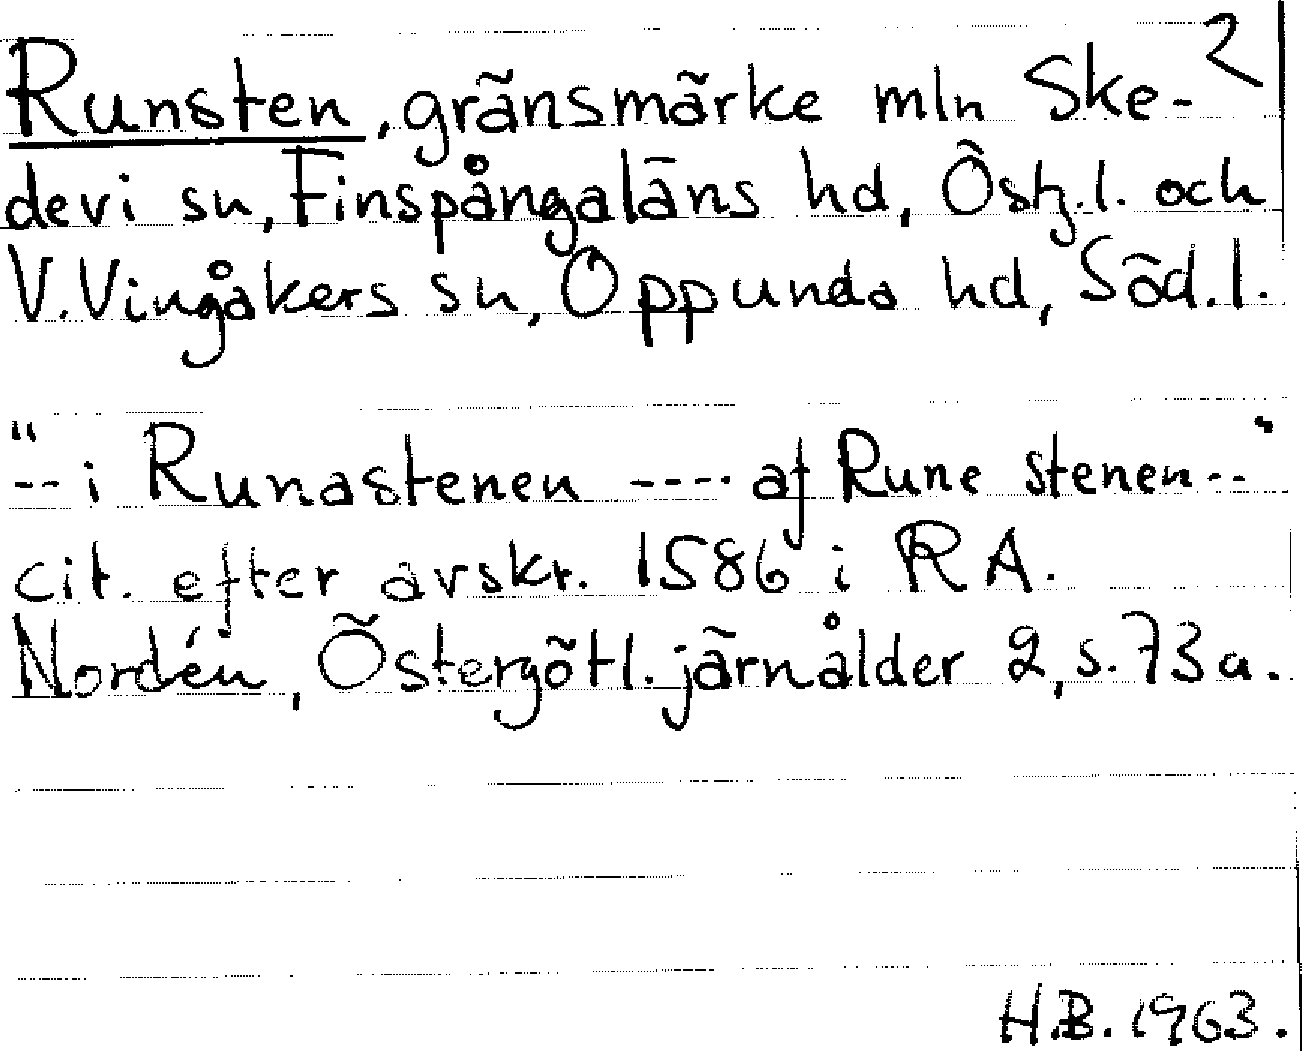 Runsten, gränsmärke mln Ske- 2
devi sn, Finspångaläns hd, Östg.l. och
V. Vingåkers sn, Oppunda hd, Söd.l.
"-- i Runastenen ---- af Rune stenen--"
cit. efter avskr. 1586 i RA.
Nordén, Östergötl. järnålder 2, s. 73 a.
H.B. 1963.